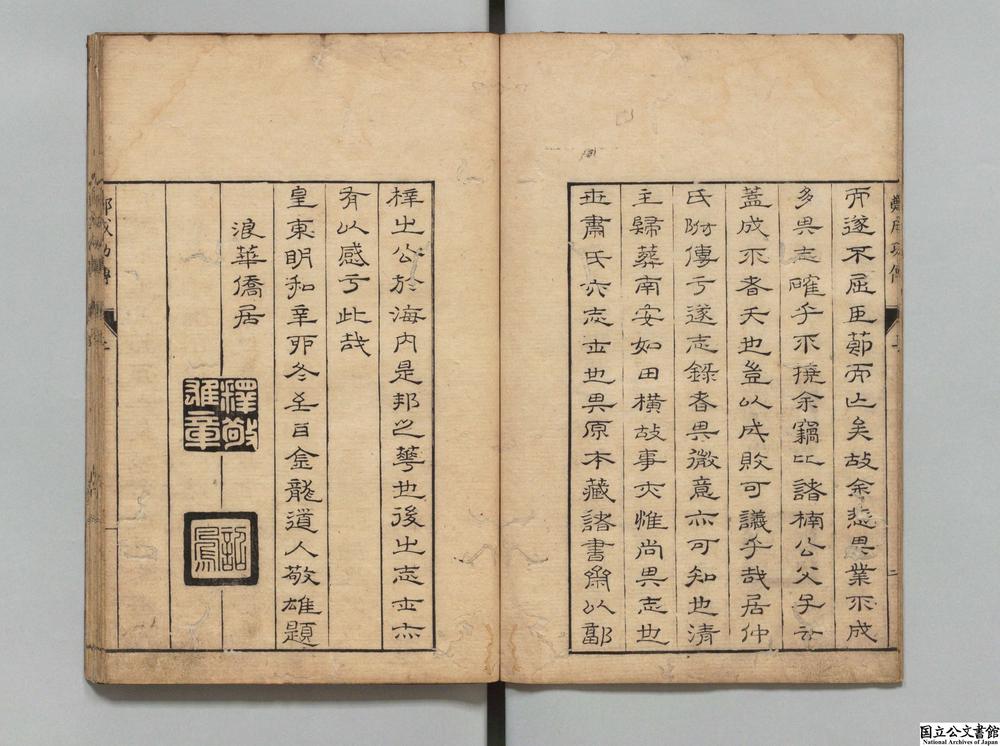 鄭成功傳
而遂不屈臣節而止矣故余悲其業不成
多其志確乎不撓余竊比諸楠公父子云
蓋成不者天也豈以成敗可議乎哉居仲
氏附傳于遂志錄者其微意亦可知也清
主歸葬南安如田橫故事亦惟尚其志也
世肅氏亦志士也其原本藏諸書齋以
梓之公於海内是邦之華也後之志士亦
有以感于此哉
皇東明和辛卯冬至日金龍道人敬雄題
浪華僑居
釋敬雄章
韶鳳
鄭成功傳
国立公文書館
National Archives of Japan